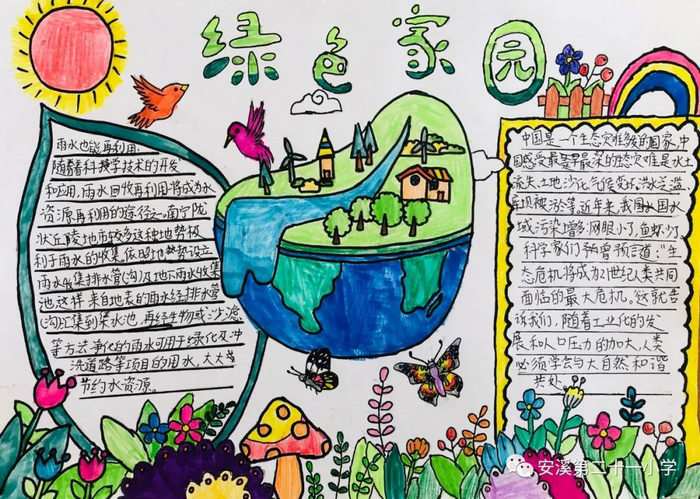 绿色家园
雨水也能再利用
随着科技学技术的开发
和应用,雨水回收再利用将成为水
资源再利用的途径之一南宁陇
状丘陵地市较多这种地势极
利于雨水的收集依围地势设立
雨水收集排水管(沟)及地下雨水收集
池这样来自地表的雨水经排水管
(沟)汇集到集水池,再经生物或沙滤
等方法净化的雨水可用于绿化及冲
洗道路等项目的用水,大大
节约水资源。
中国是一个生态灾难频的国家,中
国感受最早最深的生态灾难是水土
流失,土地沙化,气候变坏,洪水泛滥
近年来,我国水国水
域污染增多,网眼小了,鱼虾少了
科学家们预言道:“生
态危机将成为21世纪人类共同
面临的最大危机,这就告
诉我们,随着工业化的发
展和人口压力的加大,人类
必须学会与大自然和谐
共处
安溪第二十一小学